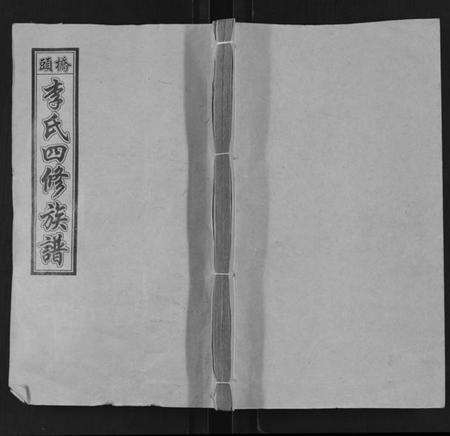 橋頭
李氏四修族譜